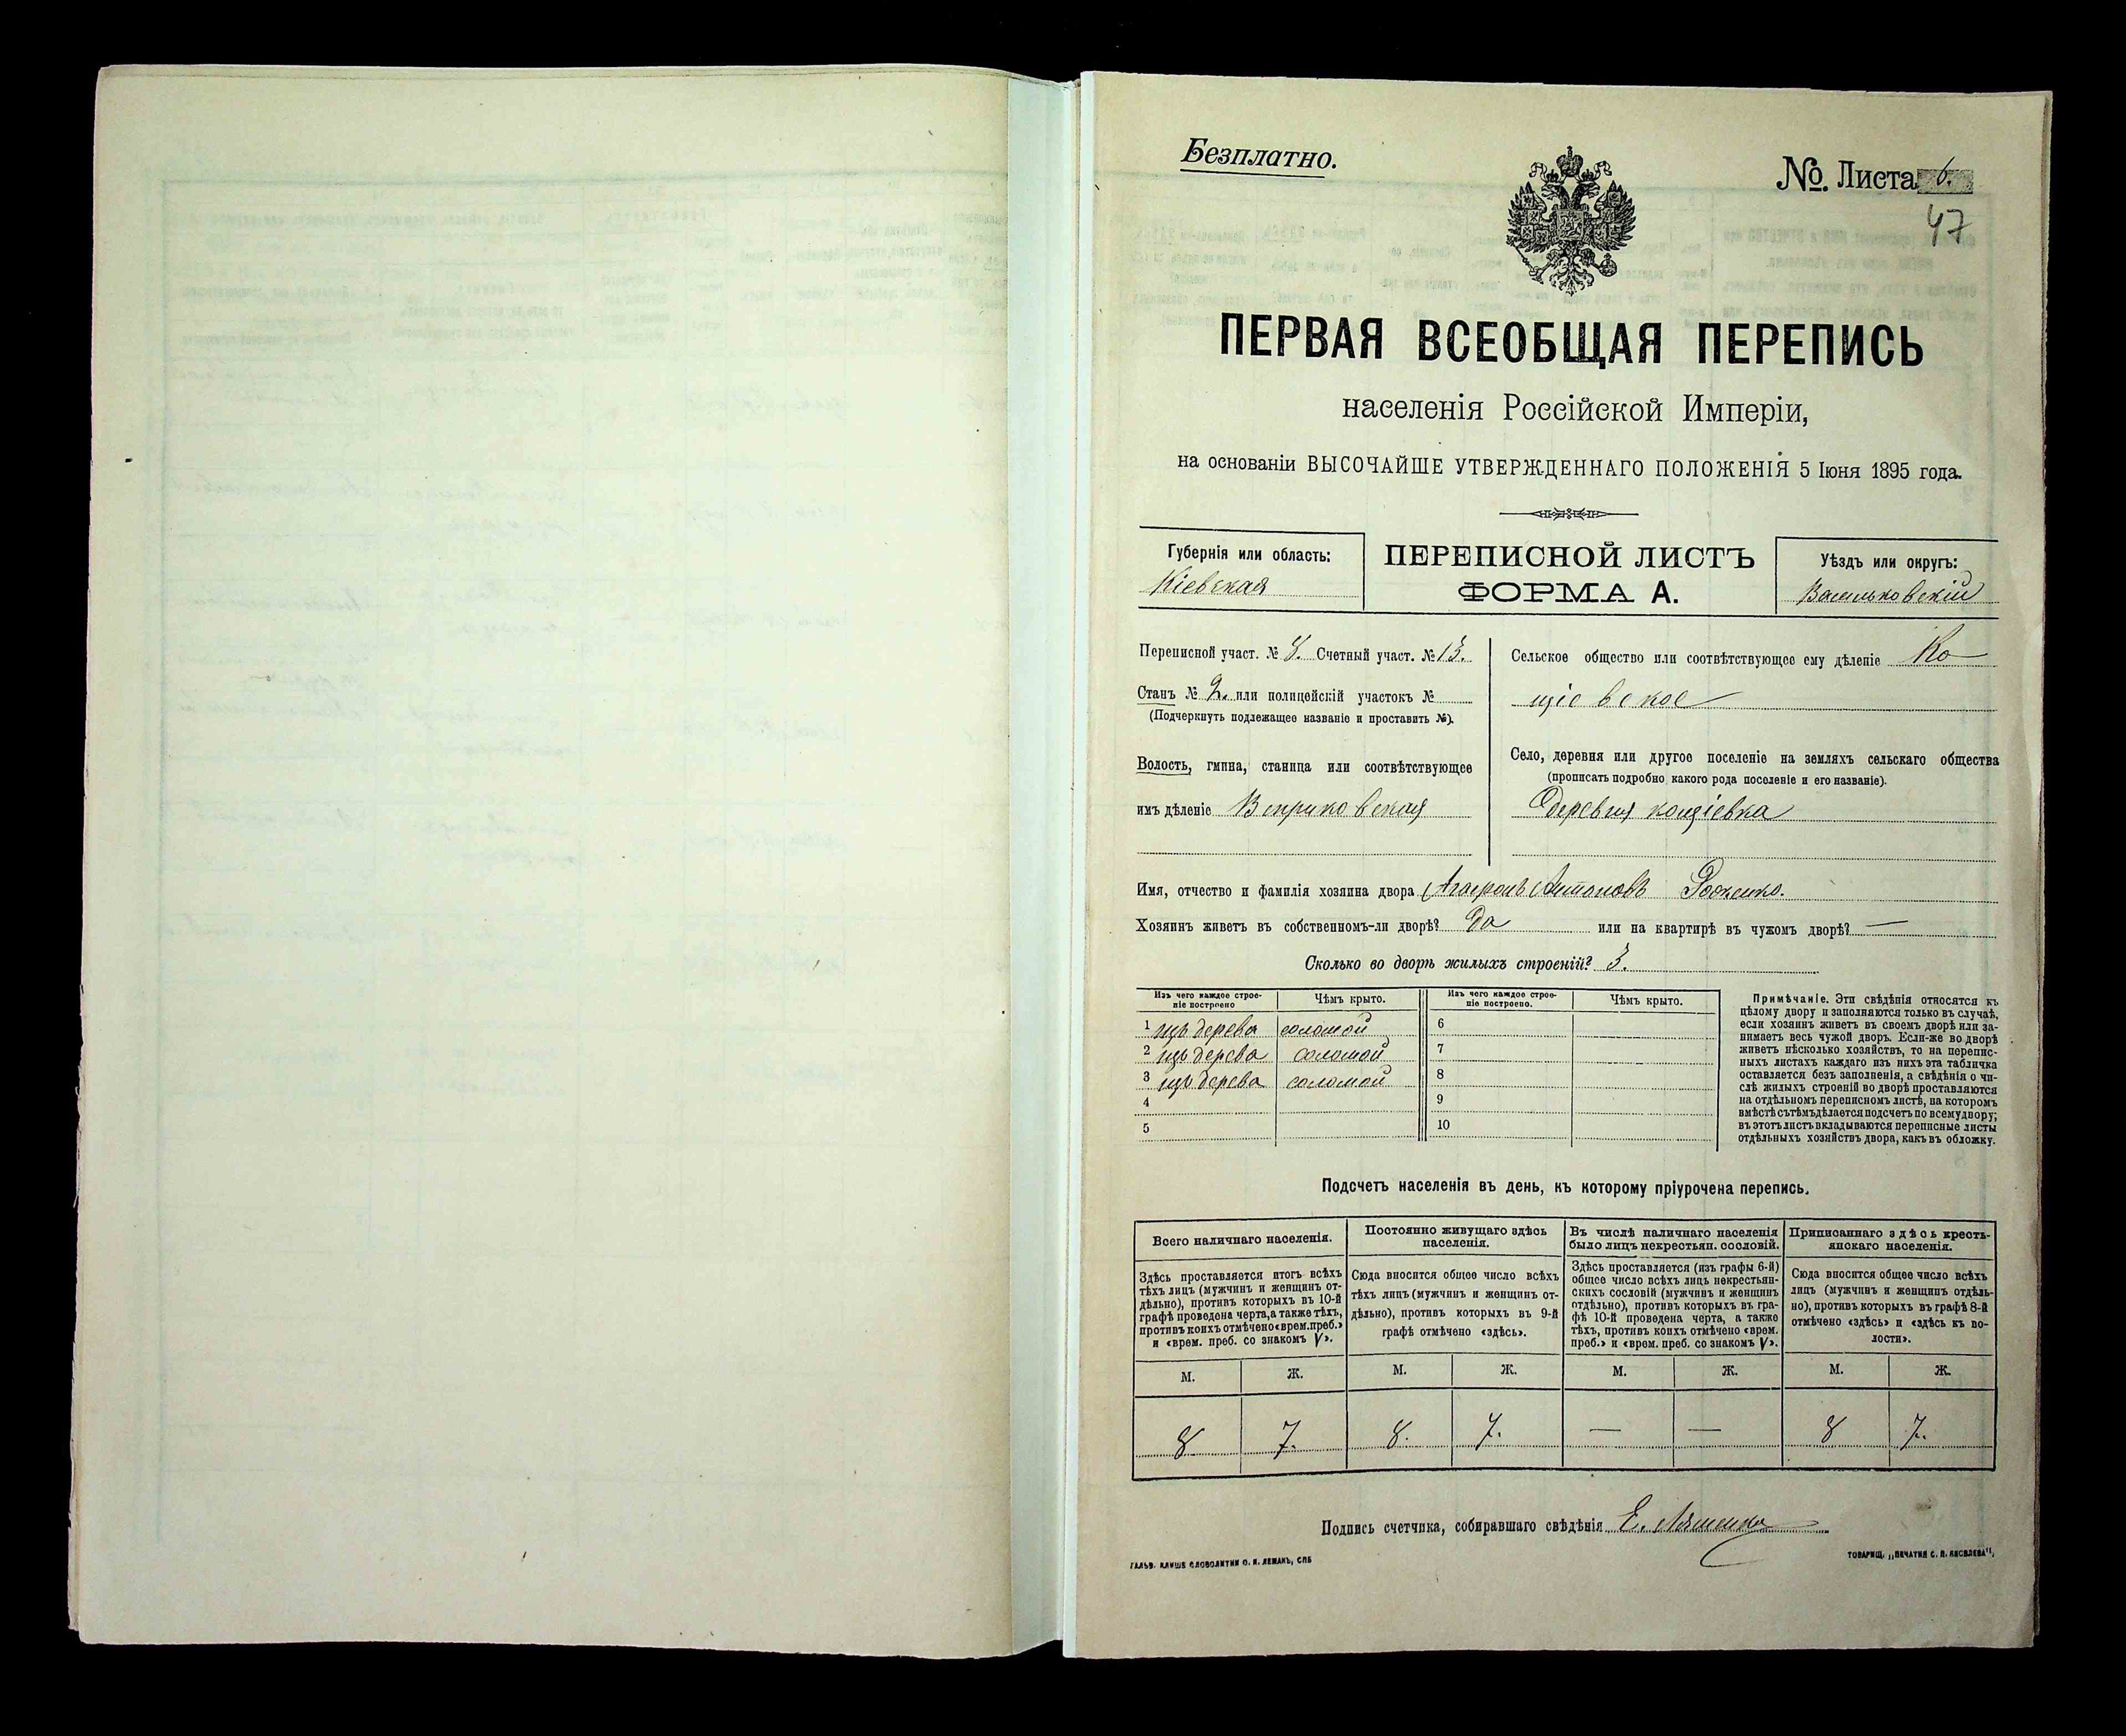 Безплатно.
№. Листа 6.
47
ПЕРВАЯ ВСЕОБЩАЯ ПЕРЕПИСЬ
населенія Россійской Имперіи,
на основаніи ВЫСОЧАЙШЕ УТВЕРЖДЕННАГО ПОЛОЖЕНІЯ 5 Іюня 1895 года.
Губернія или область:
Кіевская
ПЕРЕПИСНОЙ ЛИСТЪ
ФОРМА А.
Уѣздъ или округъ:
Васильковскій
Переписной участ. № 8. Счетный участ. № 13.
Станъ № 2. или полицейскій участокъ №
(Подчеркнуть подлежащее названіе и проставить №).
Волость, гмина, станица или соотвѣтствующее
имъ дѣленіе Веприковская
Сельское общество или соотвѣтствующее ему дѣленіе Ко
щіевское
Село, деревня или другое поселеніе на земляхъ сельскаго общества
(прописать подробно какого рода поселеніе и его названіе).
Деревня кощіевка
Имя, отчество и фамилія хозяина двора Антоновъ
Хозяинъ живетъ въ собственномъ-ли дворѣ? Да или на квартирѣ въ чужомъ дворѣ? —
Сколько во дворѣ жилыхъ строеній? 3.
Изъ чего каждое строе-
ніе построено
Чѣмъ крыто.
Изъ чего каждое строе-
ніе построено.
Чѣмъ крыто.
1 изъ дерева соломой
2 изъ дерева соломой
3 изъ дерева соломой
4
5
6
7
8
9
10
Примѣчаніе. Эти свѣдѣнія относятся къ
цѣлому двору и заполняются только въ случаѣ,
если хозяинъ живетъ въ своемъ дворѣ или за-
нимаетъ весь чужой дворъ. Если-же во дворѣ
живетъ нѣсколько хозяйствъ, то на перепис-
ныхъ листахъ каждаго изъ нихъ эта табличка
оставляется безъ заполненія, а свѣдѣнія о чи-
слѣ жилыхъ строеній во дворѣ проставляются
на отдѣльномъ переписномъ листѣ, на которомъ
вмѣстѣ съ тѣмъ дѣлается подсчетъ по всему двору;
въ этотъ листъ вкладываются переписные листы
отдѣльныхъ хозяйствъ двора, какъ въ обложку.
Подсчетъ населенія въ день, къ которому пріурочена перепись.
Всего наличнаго населенія.
Здѣсь проставляется итогъ всѣхъ
тѣхъ лицъ (мужчинъ и женщинъ от-
дѣльно), противъ которыхъ въ 10-й
графѣ проведена черта, а также тѣхъ,
противъ коихъ отмѣчено «врем. преб.»
и «врем. преб. со знакомъ V».
Постоянно живущаго здѣсь
населенія.
Сюда вносится общее число всѣхъ
тѣхъ лицъ (мужчинъ и женщинъ от-
дѣльно), противъ которыхъ въ 9-й
графѣ отмѣчено «здѣсь».
Въ числѣ наличнаго населенія
было лицъ некрестьян. сословій.
Здѣсь проставляется (изъ графы 6-й)
общее число всѣхъ лицъ некрестьян-
скихъ сословій (мужчинъ и женщинъ
отдѣльно), противъ которыхъ въ гра-
фѣ 10-й проведена черта, а также
тѣхъ, противъ коихъ отмѣчено «врем.
преб.» и «врем. преб. со знакомъ V».
Приписаннаго здѣсь кресть-
янскаго населенія.
Сюда вносится общее число всѣхъ
лицъ (мужчинъ и женщинъ отдѣль-
но), противъ которыхъ въ графѣ 8-й
отмѣчено «здѣсь» и «здѣсь къ во-
лости».
М. Ж. М. Ж. М. Ж. М. Ж.
8 7. 8. 7. — — 8 7.
Подпись счетчика, собиравшаго свѣдѣнія Е. Ляшенко
ГАЛЬВ. КЛИШЕ СЛОВОЛИТНИ О. И. ЛЕМАНЪ, СПБ
ТОВАРИЩ. „ПЕЧАТНЯ С. П. ЯКОВЛЕВА",